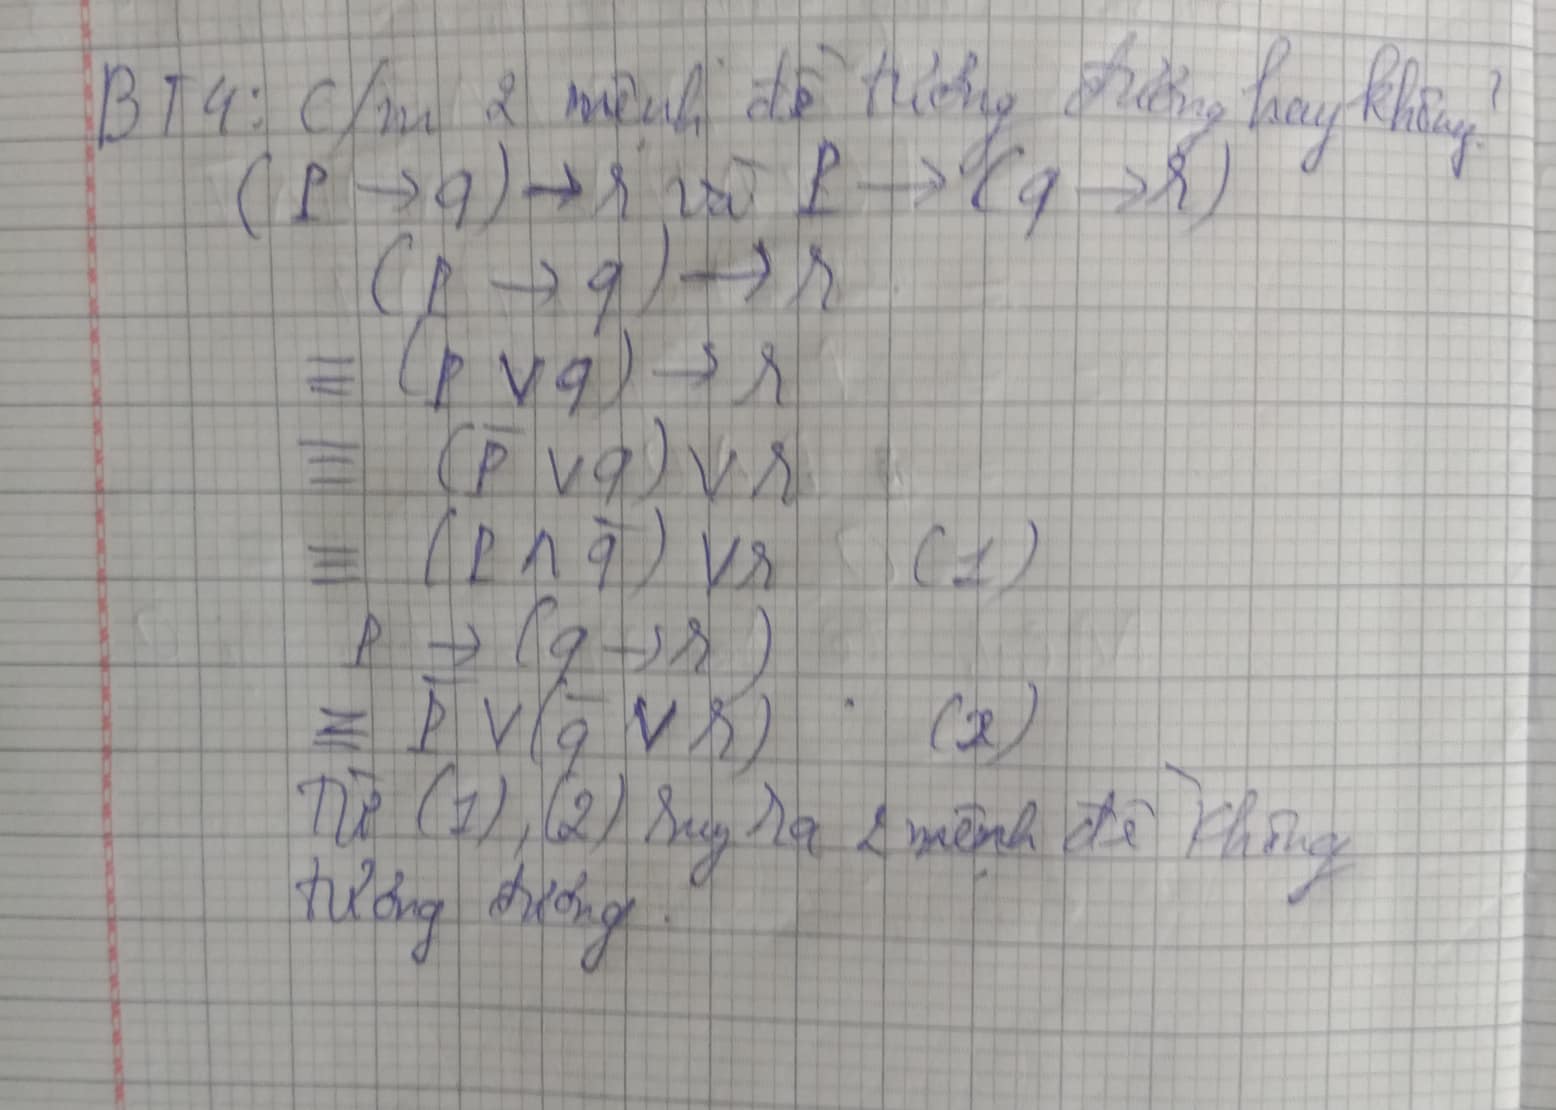 BT4: C/m 2 mệnh đề tương đương hay không?
(P → q) → r và P → (q → r)
(p → q) → r
≡ (p ∨ q) → r
≡ (p̅ ∨ q) ∨ r
≡ (p ∧ q̅) ∨ r (1)
P → (q → r)
≡ p̅ ∨ (q̅ ∨ r) (2)
Từ (1), (2) suy ra 2 mệnh đề không
tương đương.